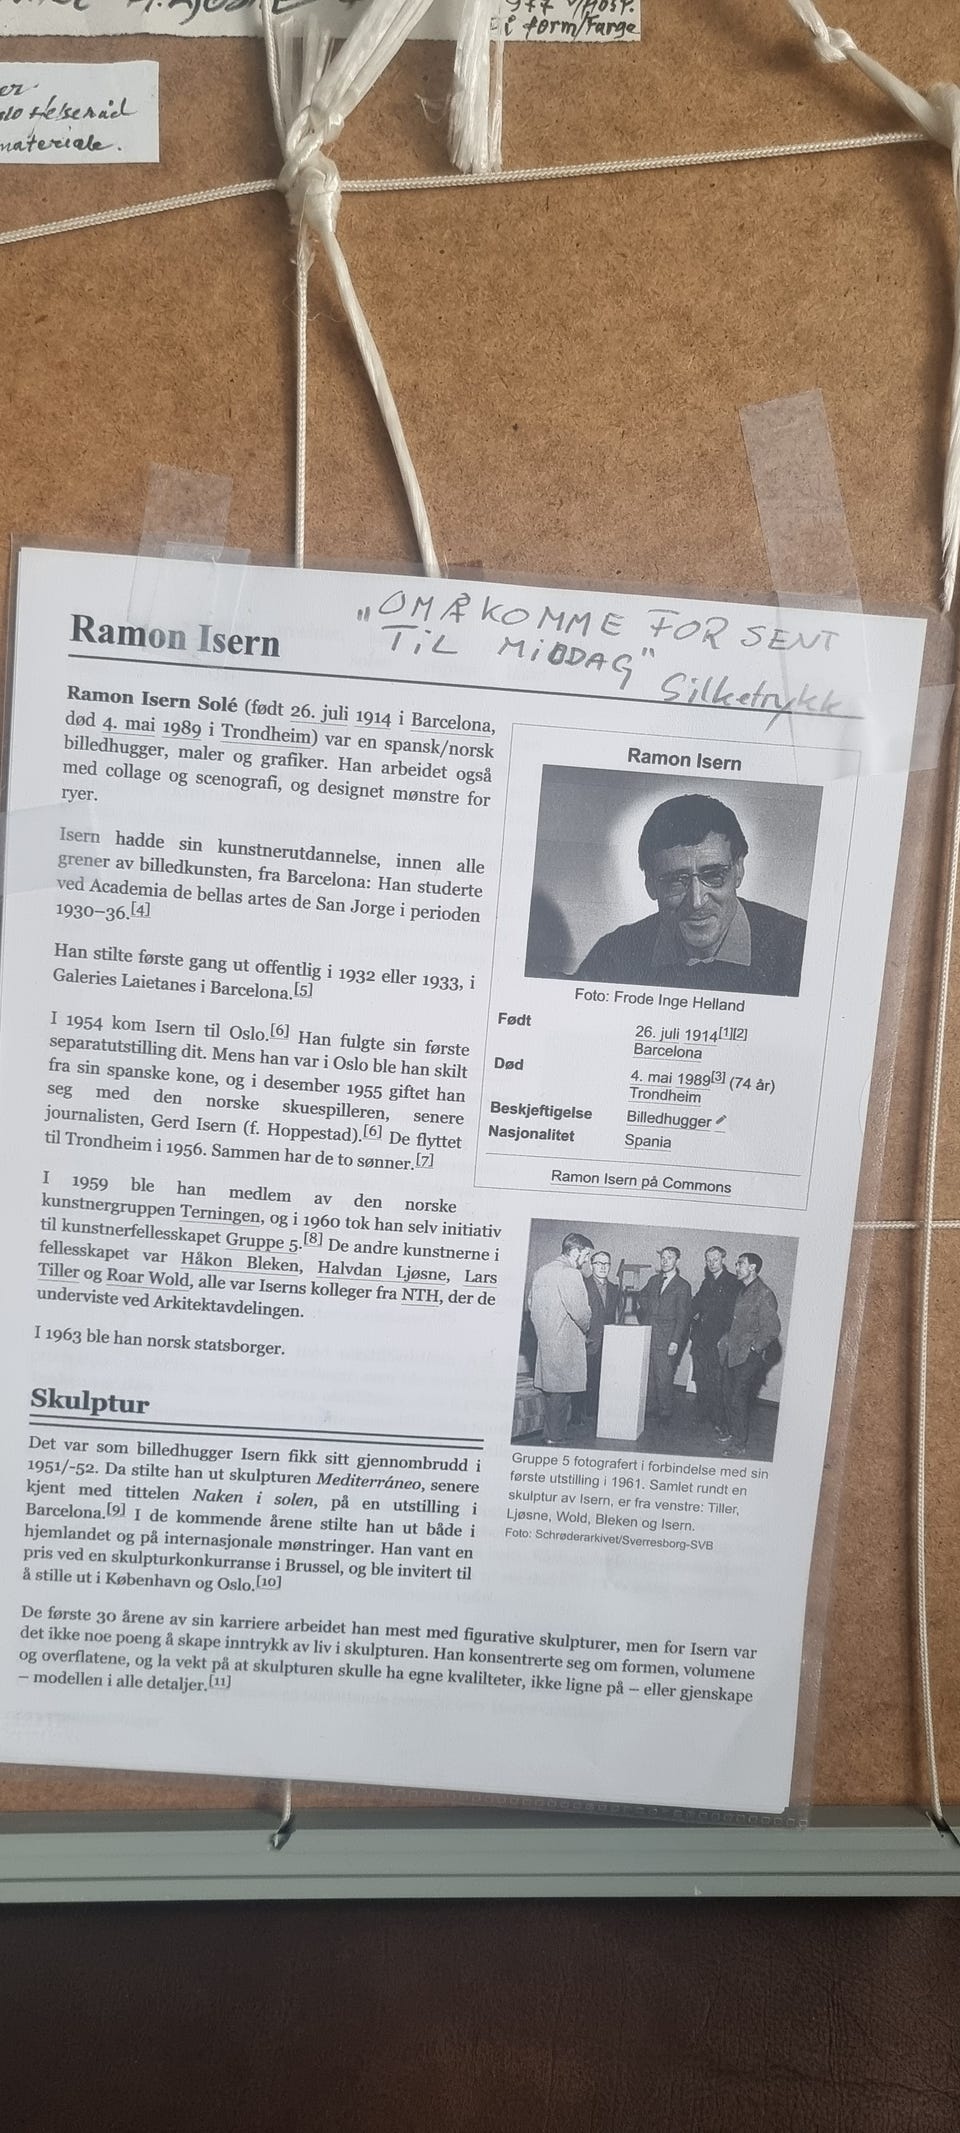 i form/Farge
materiale.
„OM Å KOMME FOR SENT
TIL MIDDAG"
Silketrykk
Ramon Isern
Ramon Isern Solé (født 26. juli 1914 i Barcelona,
død 4. mai 1989 i Trondheim) var en spansk/norsk
billedhugger, maler og grafiker. Han arbeidet også
med collage og scenografi, og designet mønstre for
ryer.
Isern hadde sin kunstnerutdannelse, innen alle
grener av billedkunsten, fra Barcelona: Han studerte
ved Academia de bellas artes de San Jorge i perioden
1930–36.[4]
Han stilte første gang ut offentlig i 1932 eller 1933, i
Galeries Laietanes i Barcelona.[5]
I 1954 kom Isern til Oslo.[6] Han fulgte sin første
separatutstilling dit. Mens han var i Oslo ble han skilt
fra sin spanske kone, og i desember 1955 giftet han
seg med den norske skuespilleren, senere
journalisten, Gerd Isern (f. Hoppestad).[6] De flyttet
til Trondheim i 1956. Sammen har de to sønner.[7]
I 1959 ble han medlem av den norske
kunstnergruppen Terningen, og i 1960 tok han selv initiativ
til kunstnerfellesskapet Gruppe 5.[8] De andre kunstnerne i
fellesskapet var Håkon Bleken, Halvdan Ljøsne, Lars
Tiller og Roar Wold, alle var Iserns kolleger fra NTH, der de
underviste ved Arkitektavdelingen.
I 1963 ble han norsk statsborger.
Ramon Isern
Foto: Frode Inge Helland
Født 26. juli 1914[1][2]
Barcelona
Død 4. mai 1989[3] (74 år)
Trondheim
Beskjeftigelse Billedhugger
Nasjonalitet Spania
Ramon Isern på Commons
Gruppe 5 fotografert i forbindelse med sin
første utstilling i 1961. Samlet rundt en
skulptur av Isern, er fra venstre: Tiller,
Ljøsne, Wold, Bleken og Isern.
Foto: Schrøderarkivet/Sverresborg-SVB
Skulptur
Det var som billedhugger Isern fikk sitt gjennombrudd i
1951/-52. Da stilte han ut skulpturen Mediterráneo, senere
kjent med tittelen Naken i solen, på en utstilling i
Barcelona.[9] I de kommende årene stilte han ut både i
hjemlandet og på internasjonale mønstringer. Han vant en
pris ved en skulpturkonkurranse i Brussel, og ble invitert til
å stille ut i København og Oslo.[10]
De første 30 årene av sin karriere arbeidet han mest med figurative skulpturer, men for Isern var
det ikke noe poeng å skape inntrykk av liv i skulpturen. Han konsentrerte seg om formen, volumene
og overflatene, og la vekt på at skulpturen skulle ha egne kvalilteter, ikke ligne på – eller gjenskape
– modellen i alle detaljer.[11]